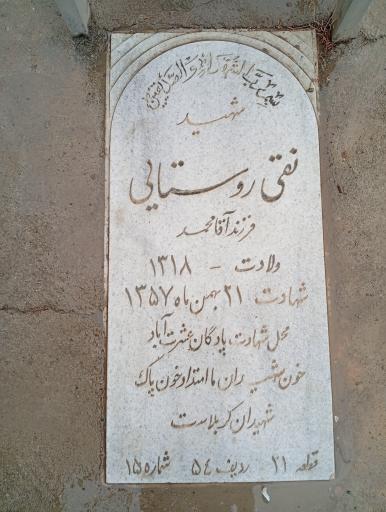 بسم رب الشهدا و الصدیقین
شهید
نقی روستایی
فرزند آقامحمد
ولادت - ۱۳۱۸
شهادت ۲۱ بهمن ماه ۱۳۵۷
محل شهادت پادگان عشرت آباد
خون شهیدان ما امتداد خون پاک
شهیدان کربلاست
قطعه ۲۱ ردیف ۵۴ شماره ۱۵